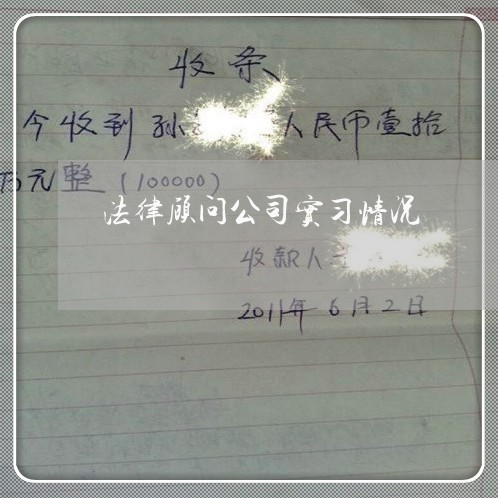 收条
今收到孙 人民币壹拾
万元整(100000)
法律顾问公司实习情况
收款人
2011年6月2日